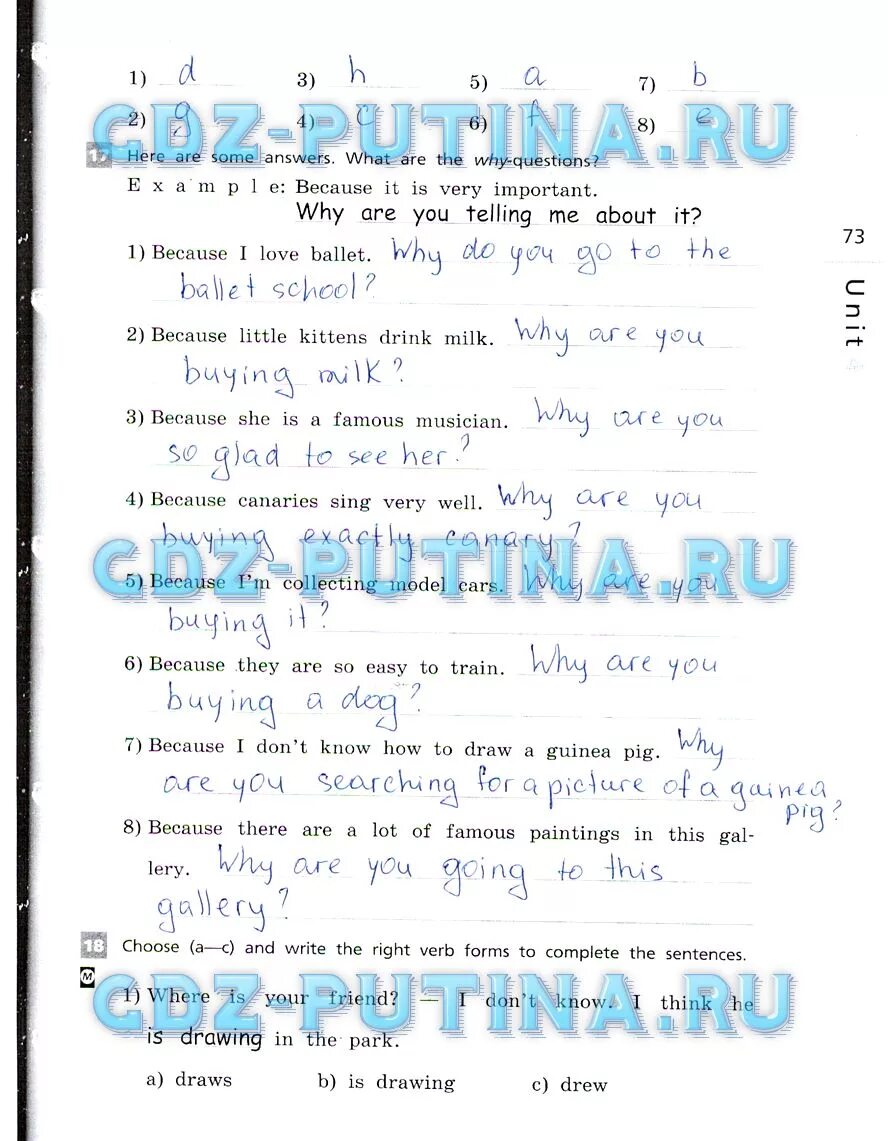 1) d 3) h 5) a 7) b
2) g 4) c 6) f 8) e
GDZ-PUTINA.RU
17 Here are some answers. What are the why-questions?
E x a m p l e: Because it is very important.
Why are you telling me about it?
73
Unit
1) Because I love ballet. Why do you go to the
ballet school?
2) Because little kittens drink milk. Why are you
buying milk?
3) Because she is a famous musician. Why are you
so glad to see her?
4) Because canaries sing very well. Why are you
buying exactly canary?
GDZ-PUTINA.RU
5) Because I'm collecting model cars. Why are you
buying it?
6) Because they are so easy to train. Why are you
buying a dog?
7) Because I don't know how to draw a guinea pig. Why
are you searching for a picture of a guinea
pig?
8) Because there are a lot of famous paintings in this gal-
lery. Why are you going to this
gallery?
18 Choose (a—c) and write the right verb forms to complete the sentences.
M
1) Where is your friend? — I don't know. I think he
GDZ-PUTINA.RU
is drawing in the park.
a) draws b) is drawing c) drew